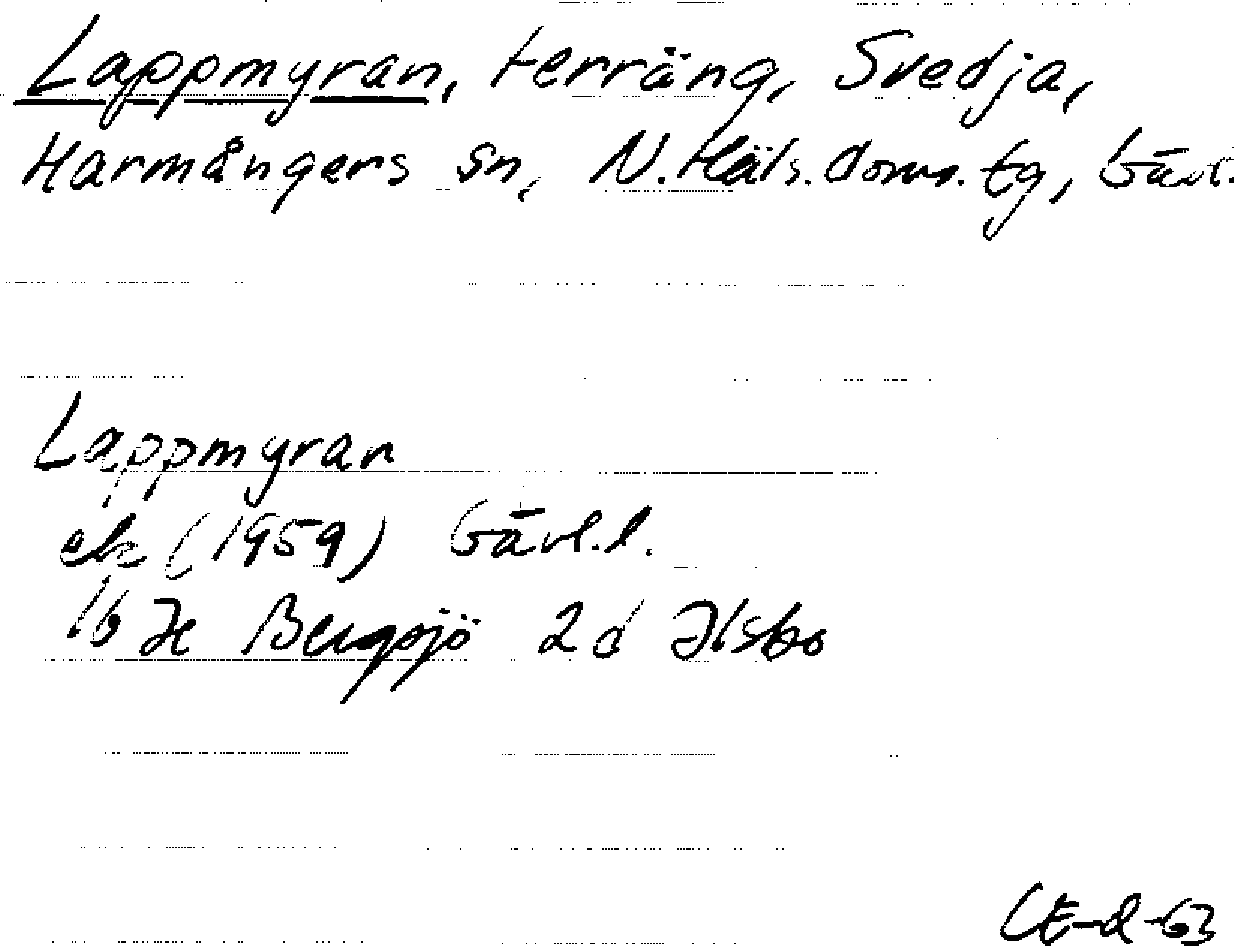 Lappmyran, terräng, Svedja,
Harmångers sn, N. Häls. doms. tg, Gävl.
Lappmyran
ek (1959) Gävl. l.
16 H Bergsjö 2 d Ilsbo